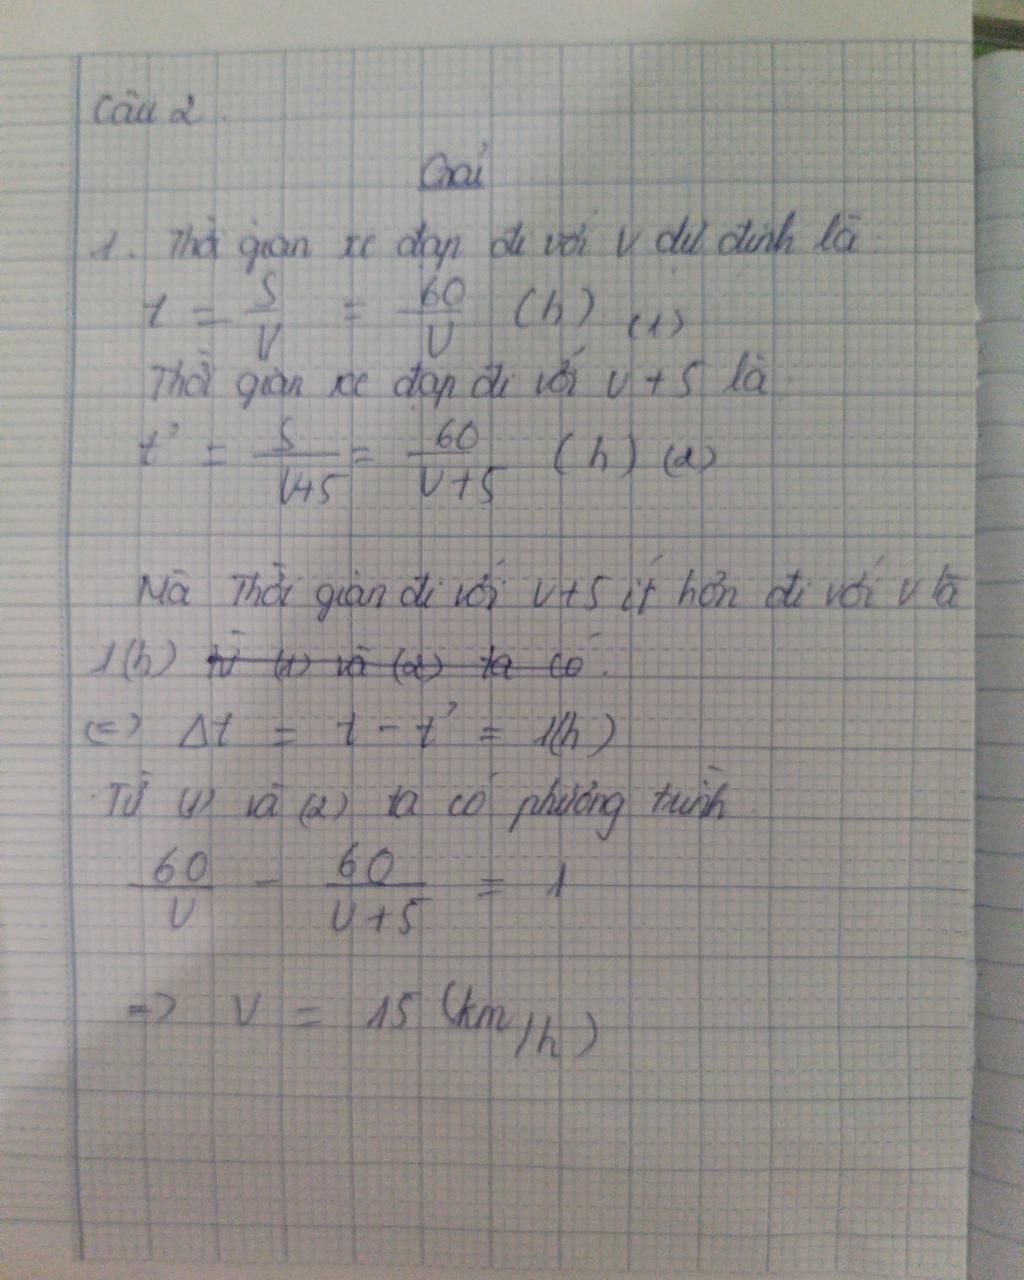 Câu 2.
Giải
1. Thời gian xe đạp đi với V dự định là:
t = S/V = 60/V (h) (1)
Thời gian xe đạp đi với V+5 là:
t' = S/V+5 = 60/V+5 (h) (2)
Mà Thời gian đi với V+5 ít hơn đi với V là
1(h) từ (1) và (2) ta có:
<=> Δt = t - t' = 1(h)
Từ (1) và (2) ta có phương trình
60/V - 60/V+5 = 1
=> V = 15 (km/h)